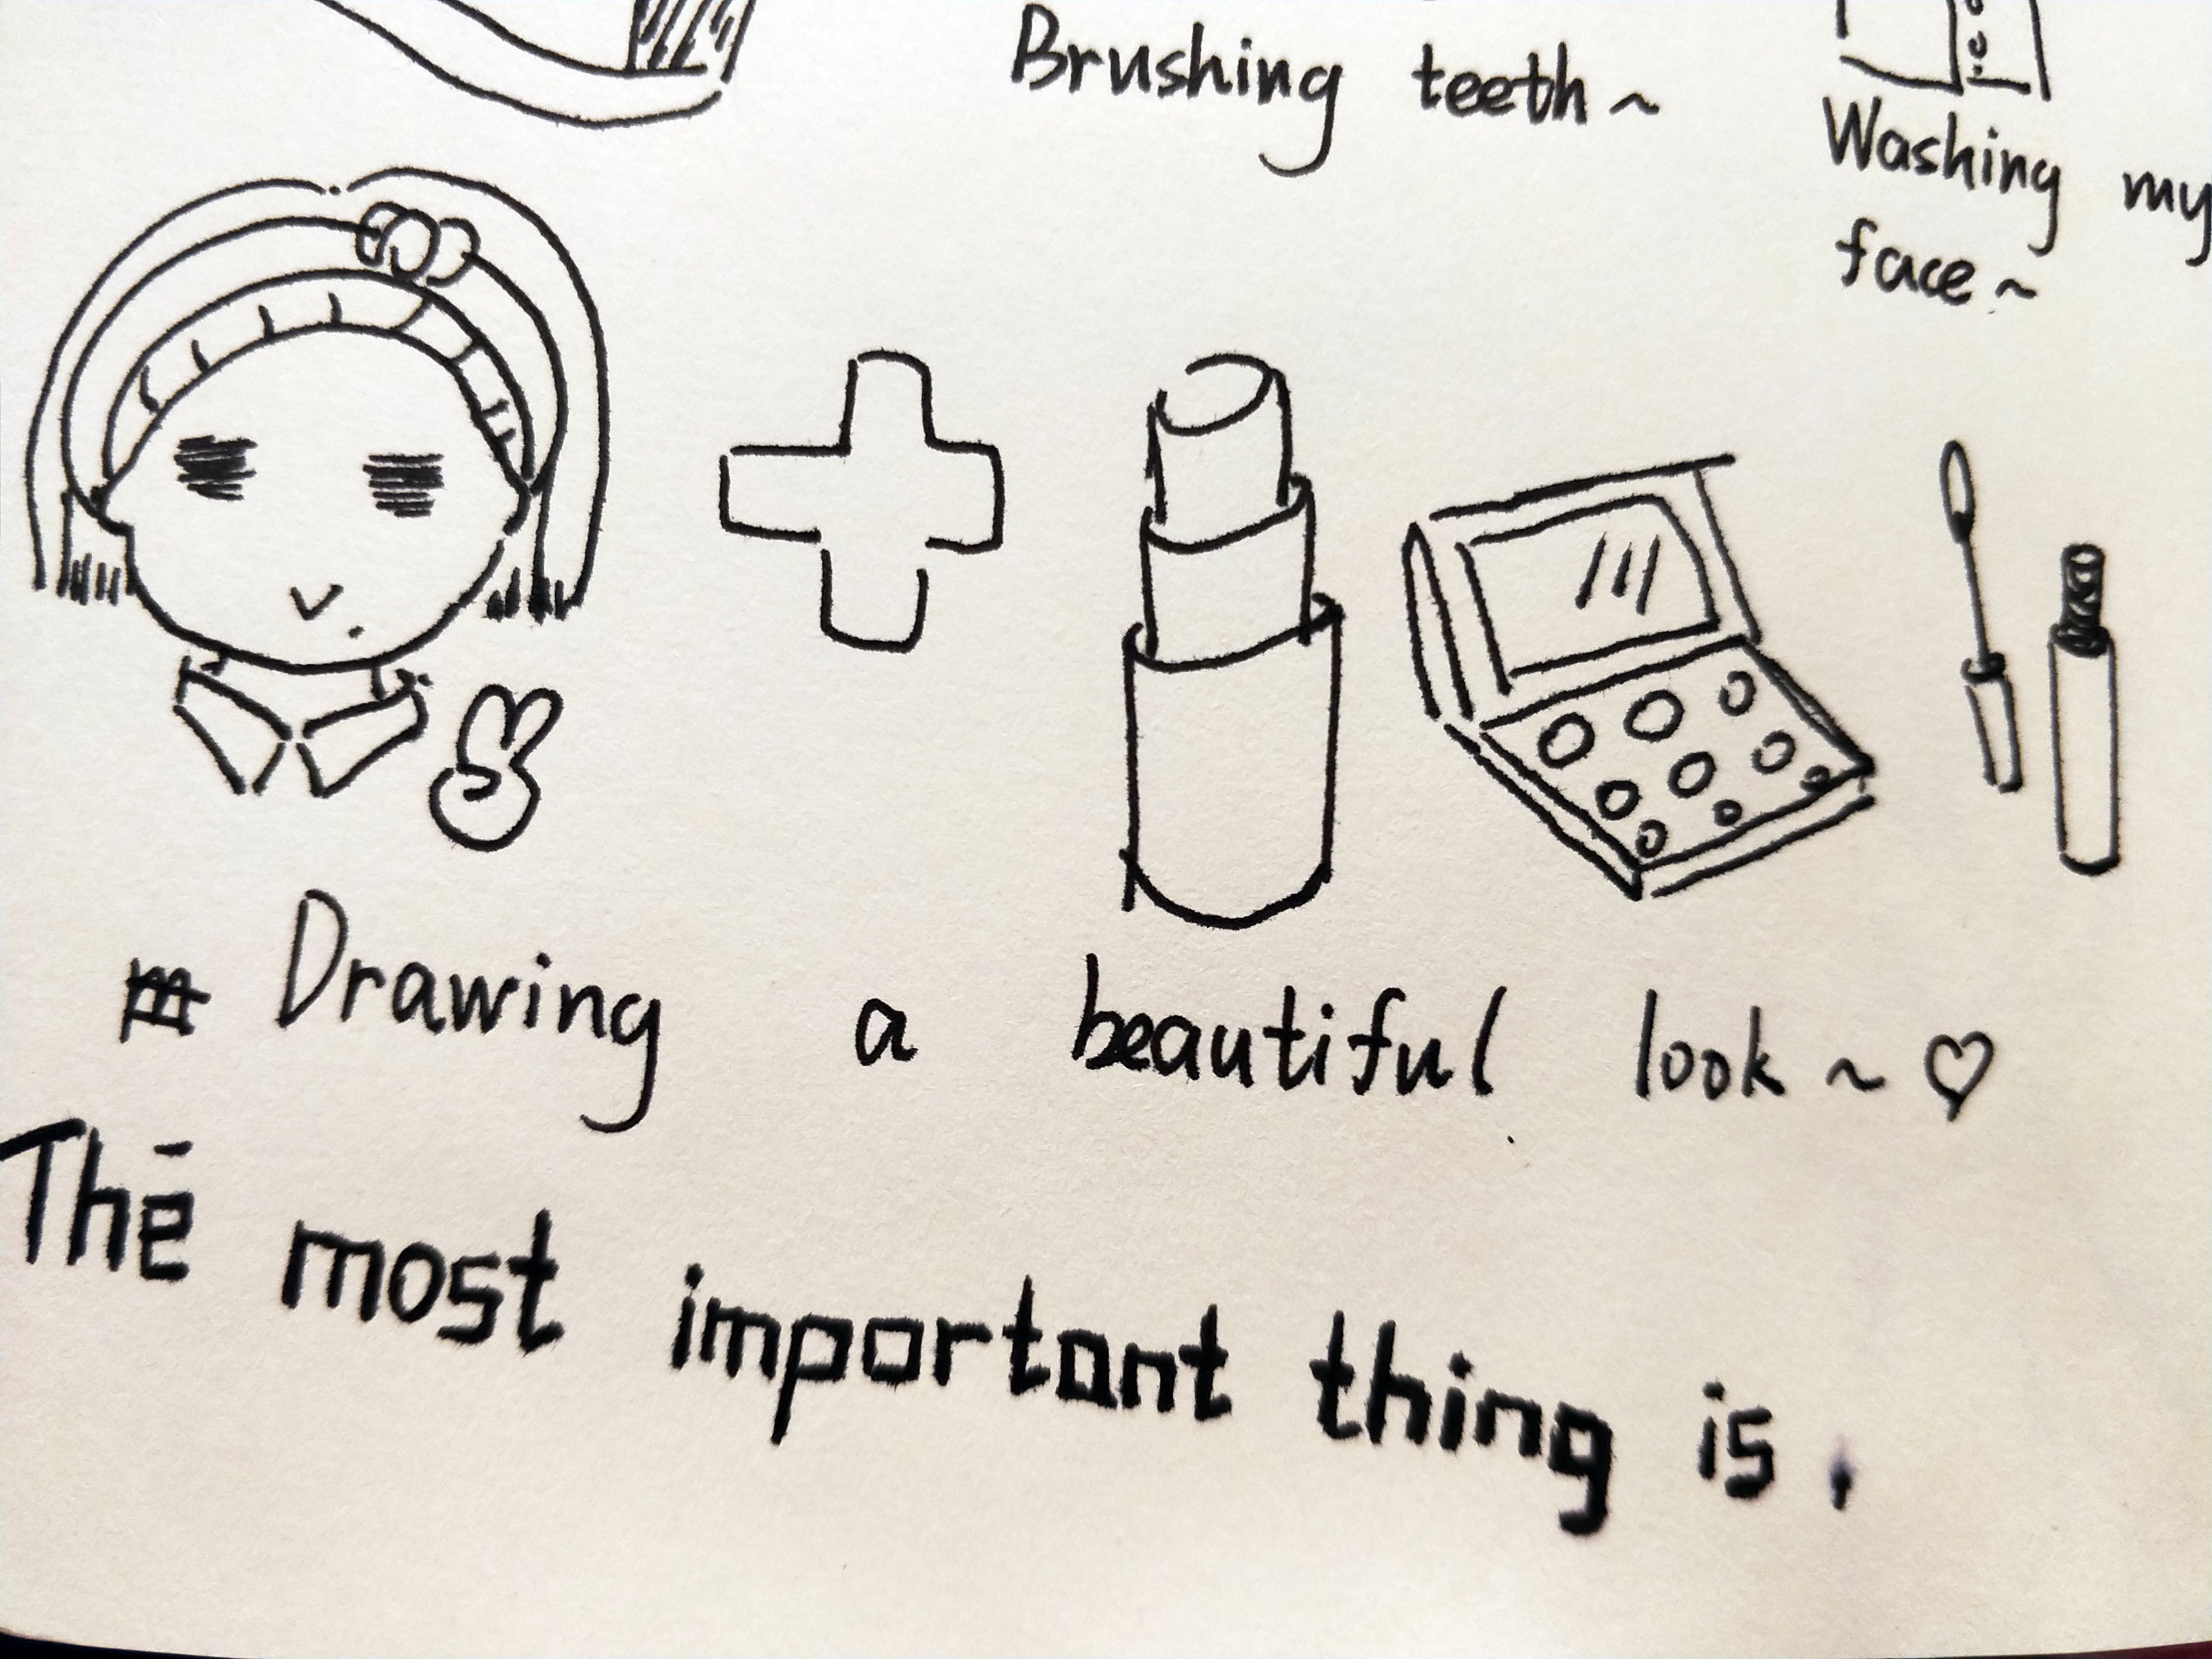 Brushing teeth~
Washing my
face~
Drawing a beautiful look~♡
The most important thing is.